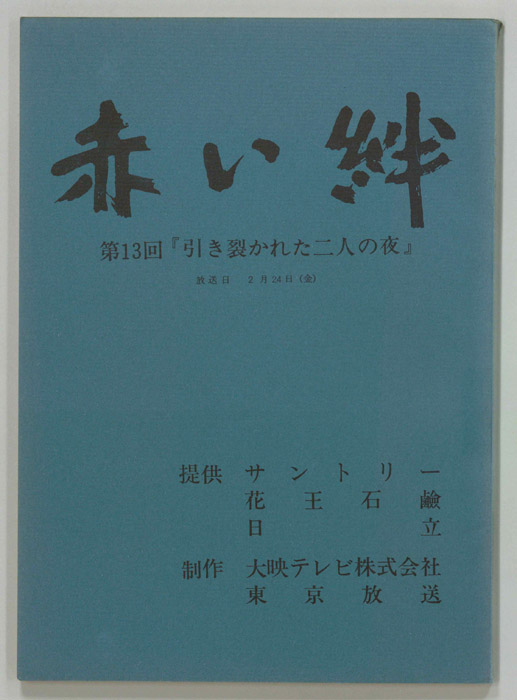 赤い絆
第13回『引き裂かれた二人の夜』
放送日 2月24日(金)
提供 サントリー
花王石鹸
日立
制作 大映テレビ株式会社
東京放送